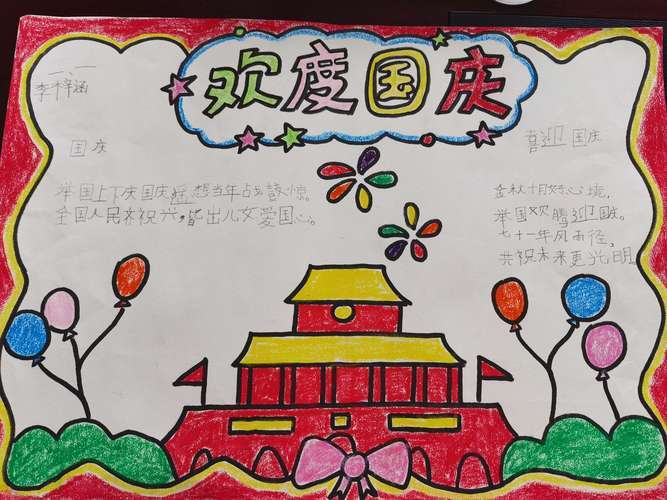 欢度国庆
一、一
李梓涵
国庆
举国上下庆国庆,想当年占敌惊。
全国人民齐祝兴,皆出儿女爱国心。
喜迎国庆
金秋十月好心境,
举国欢腾迎国庆。
七十一年风雨径,
共祝未来更光明